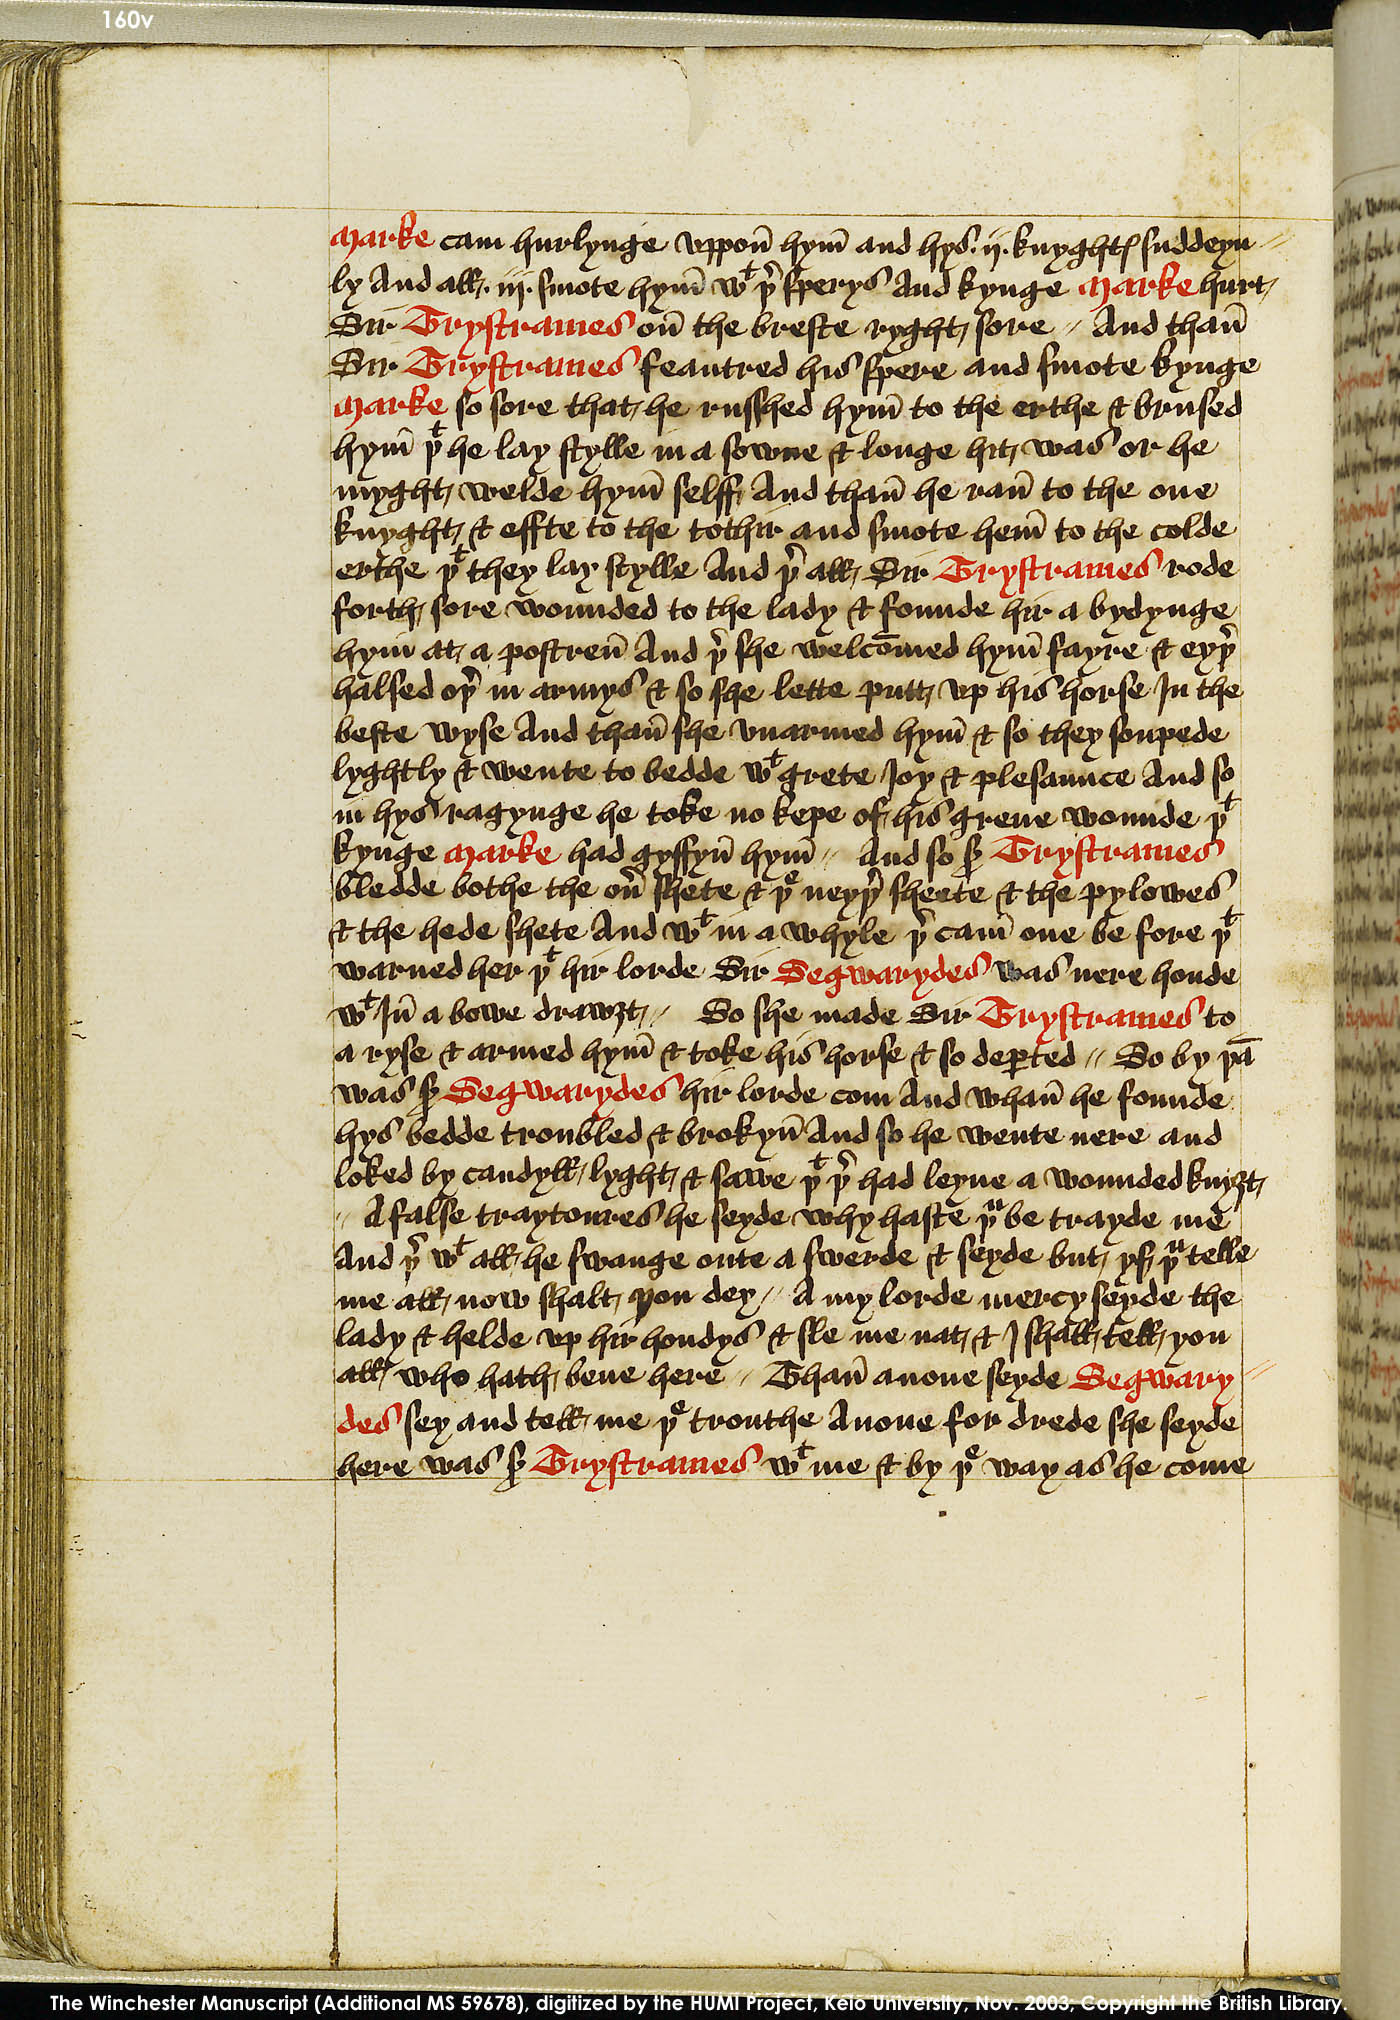 160v
Marke cam hurlynge vppon̄ hym̄ and hys .ij. knyghtꝭ suddeyn //
ly And all .iij. smote hym̄ wt þr sperys And kynge Marke hurt
Sir Trystrames on̄ the breste ryght sore // And than̄
Sir Trystrames feautred his spere and smote kynge
Marke so sore that he russhed hym̄ to the erthe & brused
hym̄ þt he lay stylle in a sowne & longe hit was or he
myght welde hym̄ selff And than̄ he ran̄ to the one
knyght & effte to the tothir and smote hem̄ to the colde
erthe þt they lay stylle And þr all Sir Trystrames rode
forth sore wounded to the lady & founde hir a bydynge
hym at a postren̄ And þr she welcōmed hym̄ fayre & eyþr
halsed oþr in armys & so she lette putt vp his horse In the
beste wyse And than̄ she vnarmed hym̄ & so they soupede
lyghtly & wente to bedde wt grete Joy & plesaunce And so
in hys ragynge he toke no kepe of his grene wounde þt
kynge Marke had gyffyn̄ hym̄ // And so sr Trystrames
bledde bothe the on̄ shete & þe neyþr sheete & the pylowes
& the hede shete And wt in a whyle þr cam̄ one be fore þt
warned her þt hir lorde Sir Segwarydes was nere honde
wt Jn̄ a bowe drawȝt // So she made Sir Trystrames to
a ryse & armed hym̄ & toke his horse & so deꝑted // So by þā
was sr Segwarydes hir lorde com And whan̄ he founde
hys bedde troubled & brokyn̄ And so he wente nere and
loked by candyll lyght & sawe þt þr had leyne a wounded knyȝt
// A false traytoures he seyde why haste þu be trayde me
And þr wt all he swange oute a swerde & seyde but yf þu telle
me all now shalt þou dey // A my lorde mercy seyde the
lady & helde vp hir hondys & sle me nat & I shall tell you
all who hath bene here // Than̄ anone seyde Segwary //
des sey and tell me þe trouthe Anone for drede she seyde
here was sr Trystrames wt me & by þe way as he come
The Winchester Manuscript (Additional MS 59678), digitized by the HUMI Project, Keio University, Nov. 2003; Copyright the British Library.